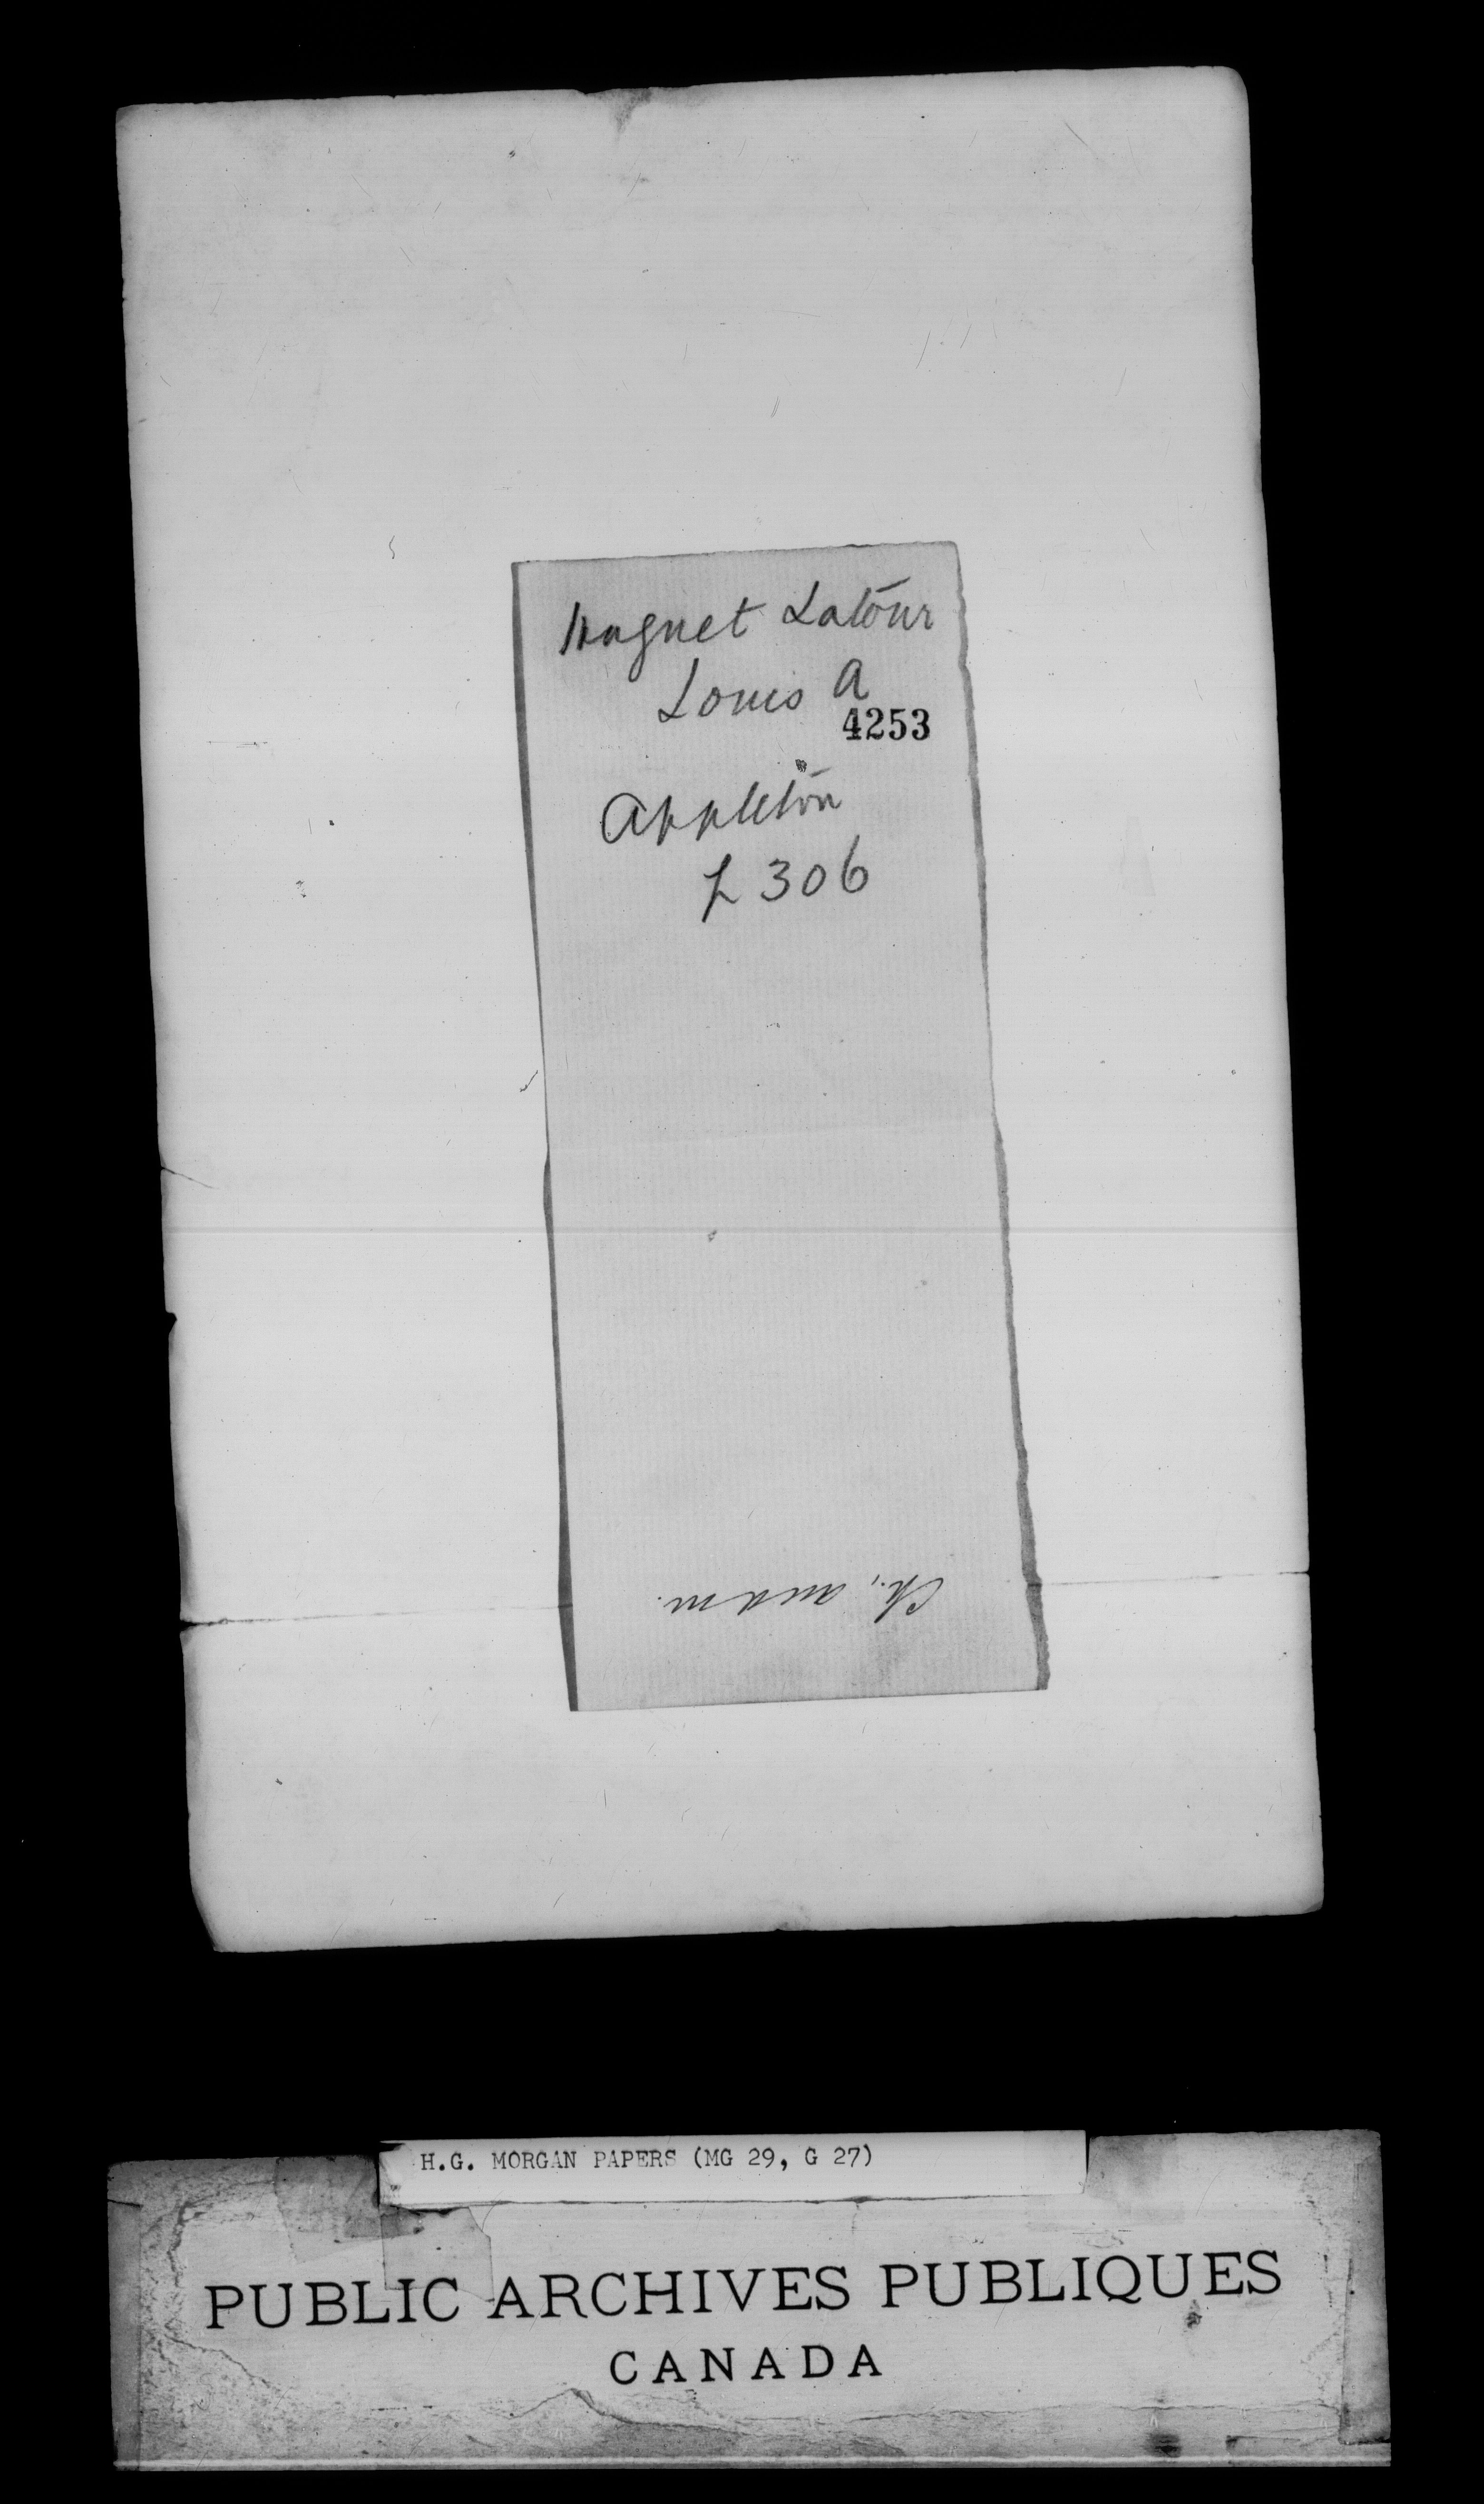 Huguet Latour
Louis A
4253
Appleton
L 306
H.G. MORGAN PAPERS (MG 29, G 27)
PUBLIC ARCHIVES PUBLIQUES
CANADA